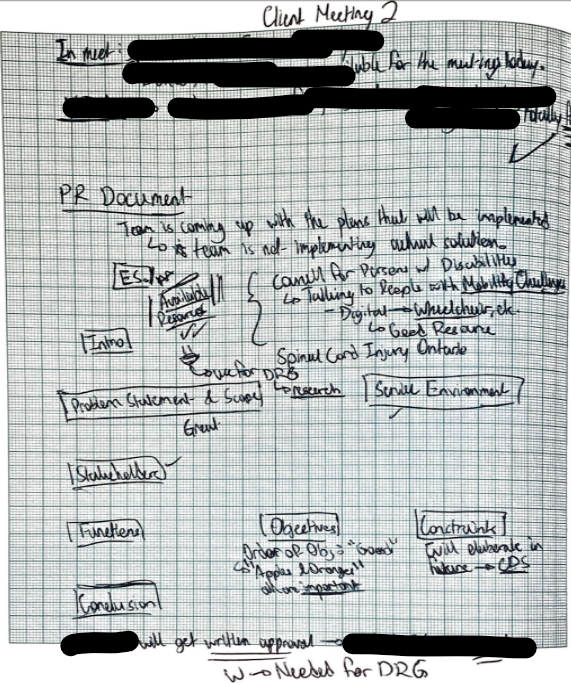 Client Meeting 2
In meet:
for the meeting today.
PR Document
Team is coming up with the plans that will be implemented
↳ team is not implementing actual solution.
ES
Available
Resources
Council for Persons w/ Disability
↳ Talking to People with Mobility Challenges
- Digital → Wheelchair, etc.
↳ Good Resource
Intro
Spinal Cord Injury Ontario
↳ research
↳ use for DRG
Problem Statement & Scope
Great
Service Environment
Stakeholders
Functions
Objectives
Order of Obj = "Good"
↳ "Apples & Oranges"
all are important
Constraints
Will elaborate in
future → CDS
Conclusion
will get written approval →
W → Needed for DRG